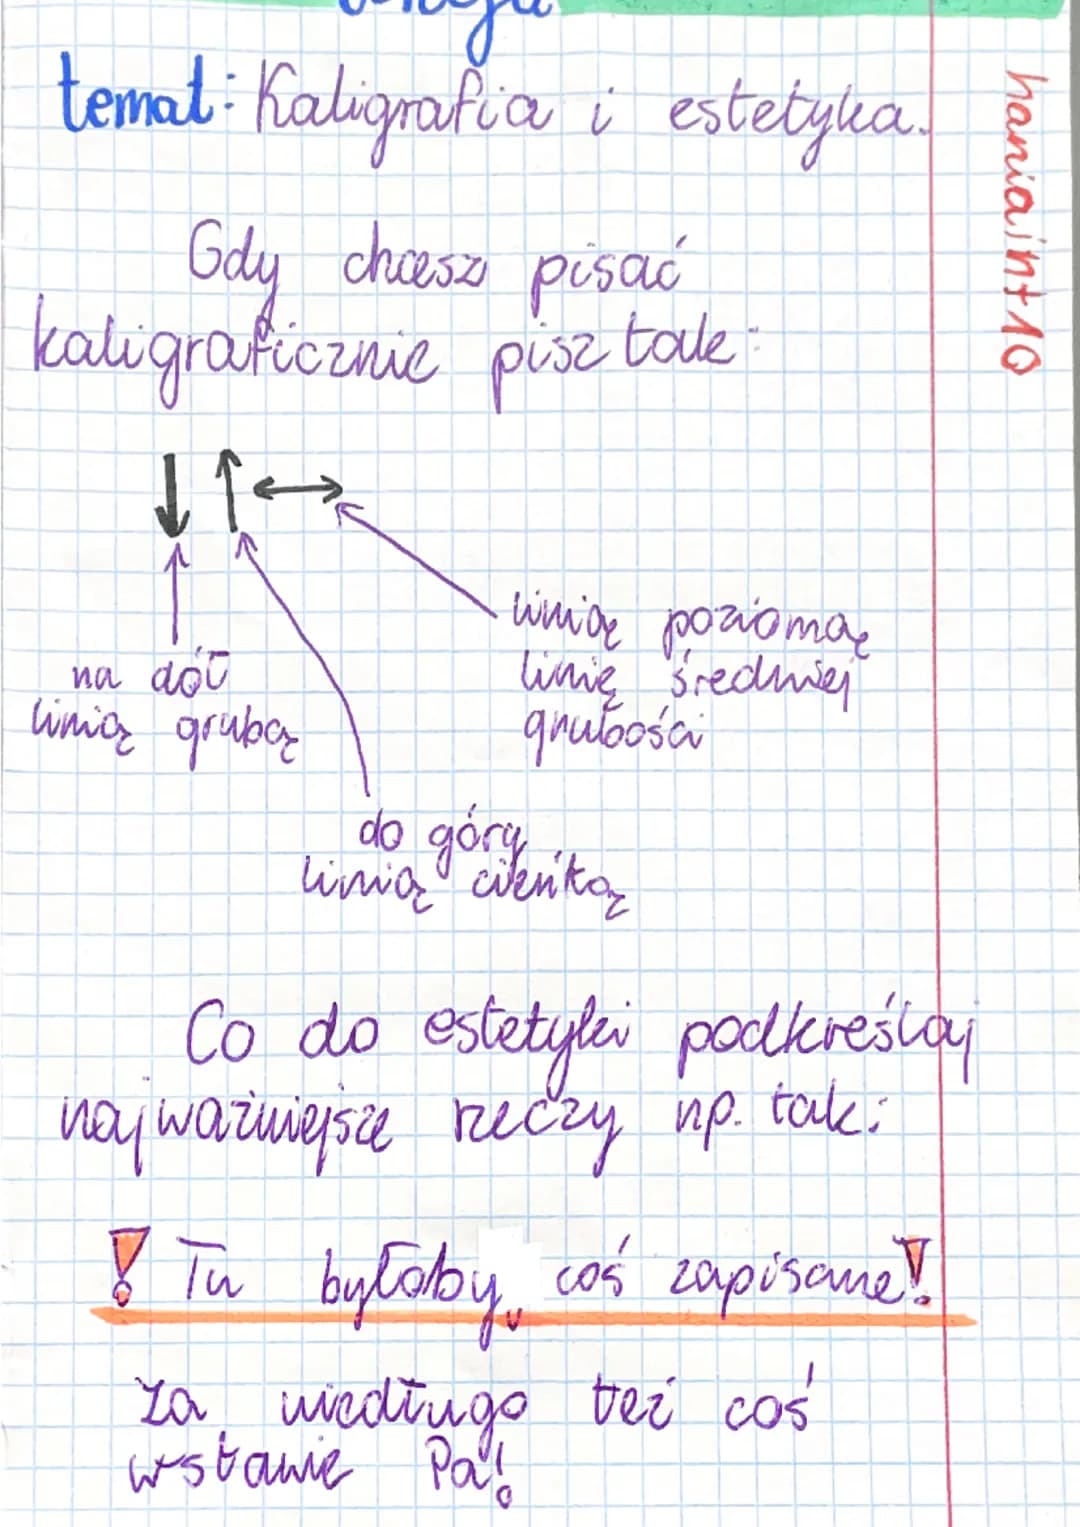 temat: Kaligrafia i estetyka.
haniaint10
Gdy chcesz pisać
kaligraficznie pisz tak:
na dół
linią grubą
linią poziomą
linię średniej
grubości
do góry
linią cieńką
Co do estetyki podkreślaj
najważniejsze rzeczy np. tak:
! Tu byłoby coś zapisane!
Za niedługo też coś
wstawię Pa!